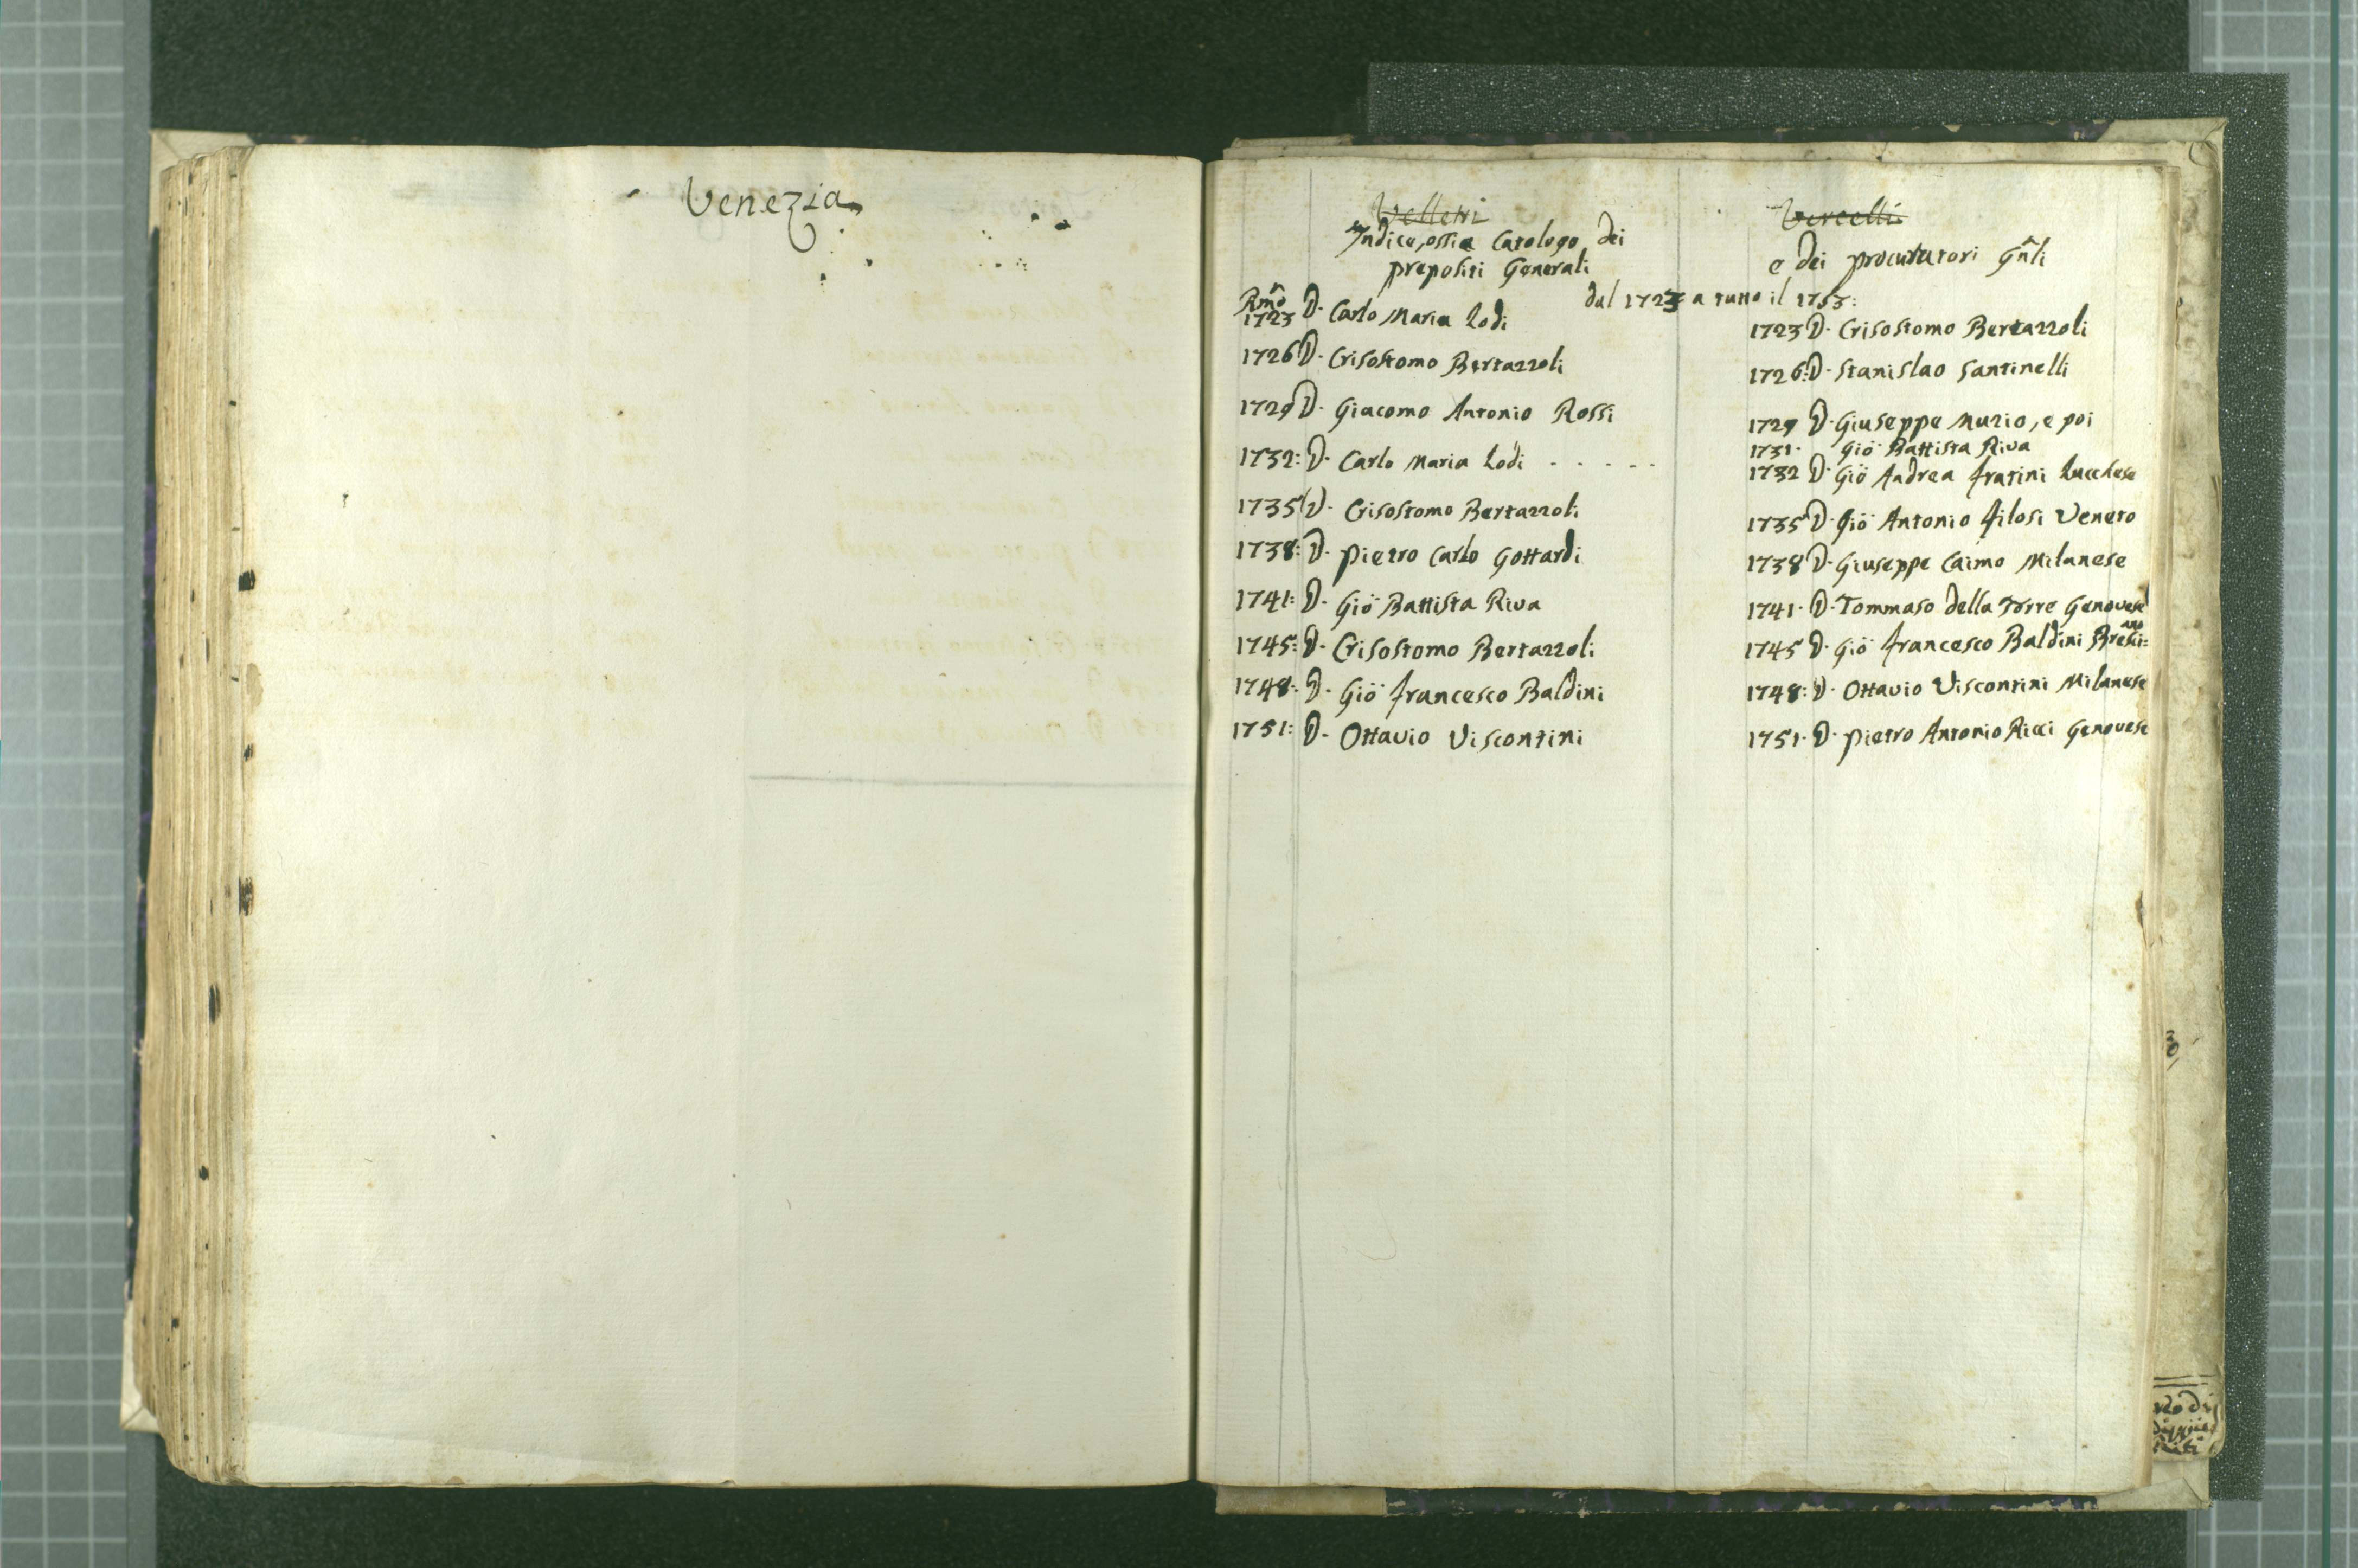 Venezia
Velletri
Indice, ossia Catologo dei
prepositi Generali
Vercelli
e dei procuratori Gnli
dal 1723 a tutto il 1753:
Rmo
1723 D. Carlo Maria Lodi
1726 D. Crisostomo Bertazzoli
1729 D. Giacomo Antonio Rossi
1732: D. Carlo Maria Lodi - - - - -
1735 D. Crisostomo Bertazzoli
1738: D. Pietro Carlo Gottardi
1741: D. Giō Battista Riva
1745: D. Crisostomo Bertazzoli
1748: D. Giō francesco Baldini
1751: D. Ottavio Viscontini
1723 D. Crisostomo Bertazzoli
1726: D. Stanislao Santinelli
1729 D. Giuseppe Muzio, e poi
1731. Giō Battista Riva
1732 D. Giō Andrea fratini Lucchese
1735 D. Giō Antonio filosi Veneto
1738 D. Giuseppe Caimo Milanese
1741. D. Tommaso della Torre Genovese
1745 D. Giō francesco Baldini Bresci=ano
1748: D. Ottavio Viscontini Milanese
1751. D. Pietro Antonio Ricci Genovese